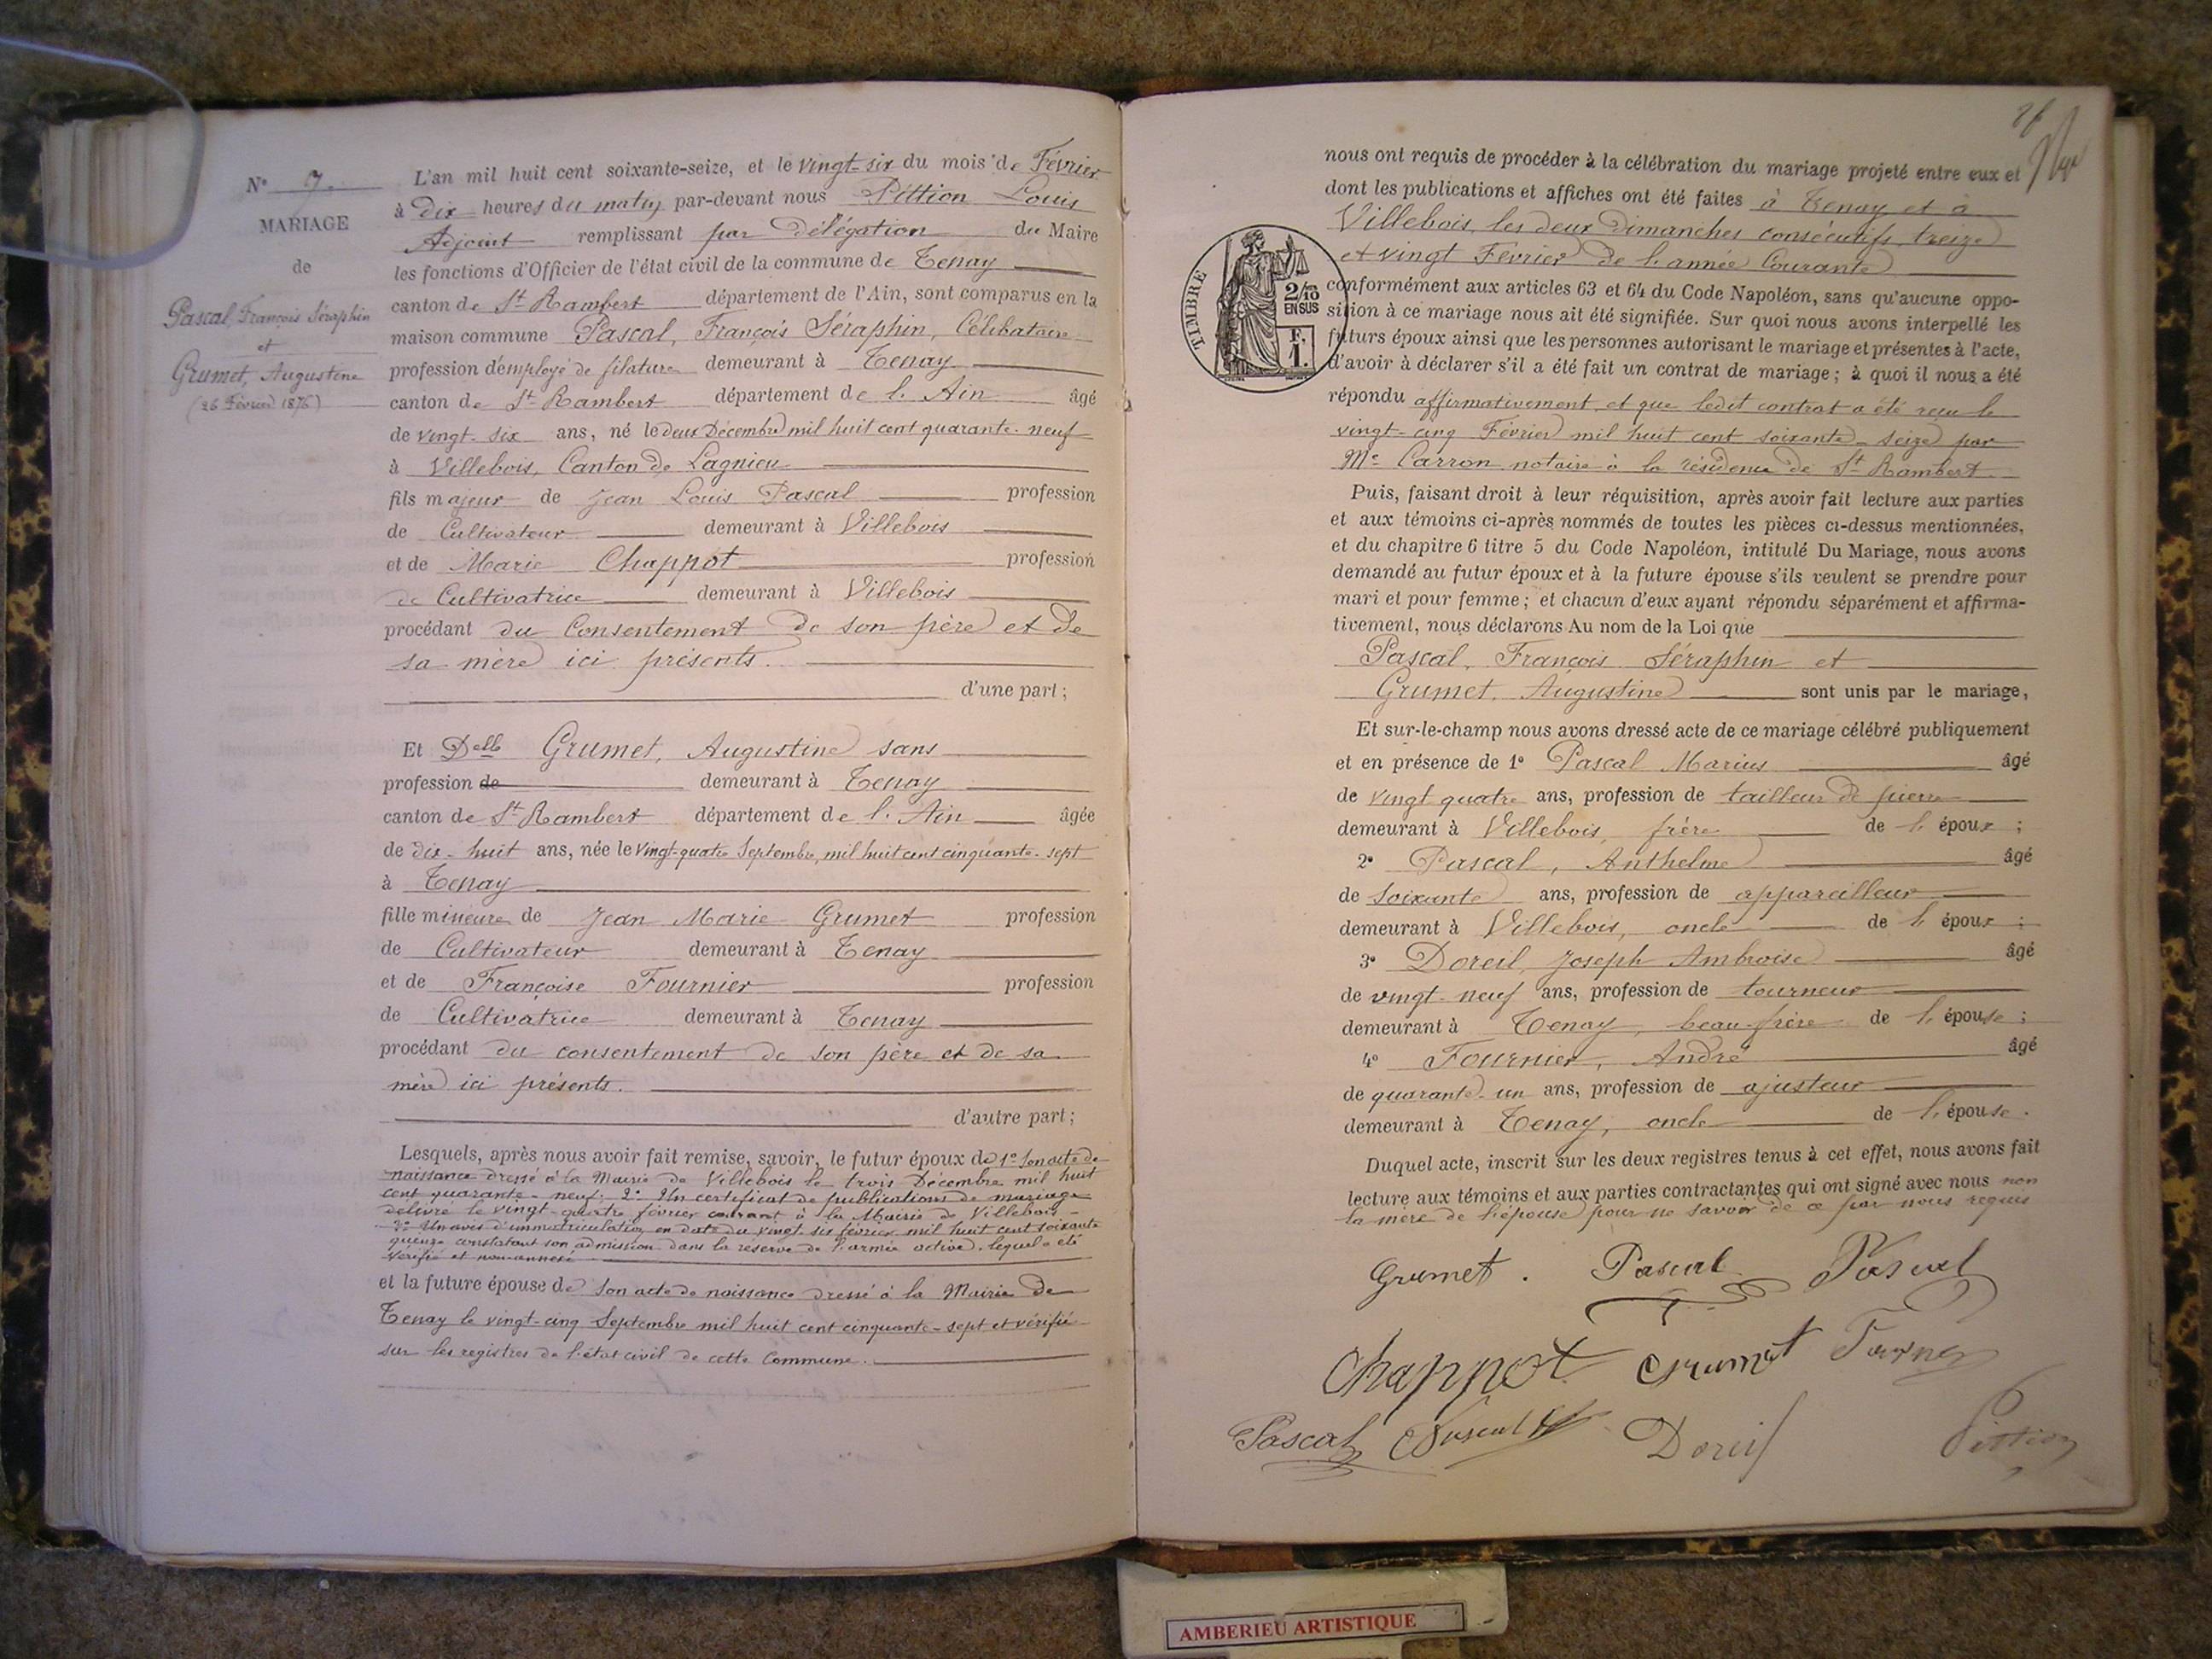 N° 7.
MARIAGE
de
Pascal, François Séraphin
et
Grumet, Augustine
(26 Février 1876)
L'an mil huit cent soixante-seize, et le vingt-six du mois de Février
à dix heures du matin par-devant nous Pittion Louis
Adjoint remplissant par délégation du Maire
les fonctions d'Officier de l'état civil de la commune de Tenay
canton de St Rambert département de l'Ain, sont comparus en la
maison commune Pascal, François Séraphin, Célibataire
profession d'employé de filature demeurant à Tenay
canton de St Rambert département de l'Ain âgé
de vingt-six ans, né le deux Décembre mil huit cent quarante-neuf
à Villebois, Canton de Lagnieu
fils majeur de Jean Louis Pascal profession
de Cultivateur demeurant à Villebois
et de Marie Chappot profession
de Cultivatrice demeurant à Villebois
procédant du Consentement de son père et de
sa mère ici présents.
d'une part;
Et Delle Grumet, Augustine sans
profession de demeurant à Tenay
canton de St Rambert département de l'Ain âgée
de dix-huit ans, née le vingt-quatre Septembre, mil huit cent cinquante-sept
à Tenay
fille mineure de Jean Marie Grumet profession
de Cultivateur demeurant à Tenay
et de Françoise Fournier profession
de Cultivatrice demeurant à Tenay
procédant du consentement de son père et de sa
mère ici présents.
d'autre part;
Lesquels, après nous avoir fait remise, savoir, le futur époux de 1° Son acte de
naissance dressé à la Mairie de Villebois le trois Décembre mil huit
cent quarante-neuf; 2° Un certificat de publications de mariage
délivré le vingt-quatre février courant à la Mairie de Villebois
3° Un avis d'immatriculation en date du vingt-six février mil huit cent soixante
quinze constatant son admission dans la réserve de l'armée active, lequel a été
vérifié et non-annexé
et la future épouse de Son acte de naissance dressé à la Mairie de
Tenay le vingt-cinq Septembre mil huit cent cinquante-sept et vérifié
sur les registres de l'état civil de cette Commune.
nous ont requis de procéder à la célébration du mariage projeté entre eux et
dont les publications et affiches ont été faites à Tenay et à
Villebois, les deux Dimanches consécutifs, treize
et vingt Février de l'année Courante
conformément aux articles 63 et 64 du Code Napoléon, sans qu'aucune oppo-
sition à ce mariage nous ait été signifiée. Sur quoi nous avons interpellé les
futurs époux ainsi que les personnes autorisant le mariage et présentes à l'acte,
d'avoir à déclarer s'il a été fait un contrat de mariage; à quoi il nous a été
répondu affirmativement, et que ledit contrat a été reçu le
vingt-cinq Février mil huit cent soixante-seize par
Me Carron notaire à la résidence de St Rambert.
TIMBRE
2/10
EN SUS
F.
1.
Puis, faisant droit à leur réquisition, après avoir fait lecture aux parties
et aux témoins ci-après nommés de toutes les pièces ci-dessus mentionnées,
et du chapitre 6 titre 5 du Code Napoléon, intitulé Du Mariage, nous avons
demandé au futur époux et à la future épouse s'ils veulent se prendre pour
mari et pour femme; et chacun d'eux ayant répondu séparément et affirma-
tivement, nous déclarons Au nom de la Loi que
Pascal, François Séraphin et
Grumet, Augustine sont unis par le mariage,
Et sur-le-champ nous avons dressé acte de ce mariage célébré publiquement
et en présence de 1° Pascal Marius âgé
de vingt quatre ans, profession de tailleur de pierre
demeurant à Villebois, frère de l'époux;
2° Pascal, Anthelme âgé
de soixante ans, profession de appareilleur
demeurant à Villebois, oncle de l'époux;
3° Doreil, Joseph Ambroise âgé
de vingt-neuf ans, profession de tourneur
demeurant à Tenay, beau-frère de l'épouse;
4° Fournier, André âgé
de quarante-un ans, profession de ajusteur
demeurant à Tenay, oncle de l'épouse.
Duquel acte, inscrit sur les deux registres tenus à cet effet, nous avons fait
lecture aux témoins et aux parties contractantes qui ont signé avec nous non
la mère de l'épouse pour ne savoir de ce par nous requis
Grumet. Pascal Pascal
Chappot Grumet
Pascal Pascal Doreil Pittion
AMBERIEU ARTISTIQUE